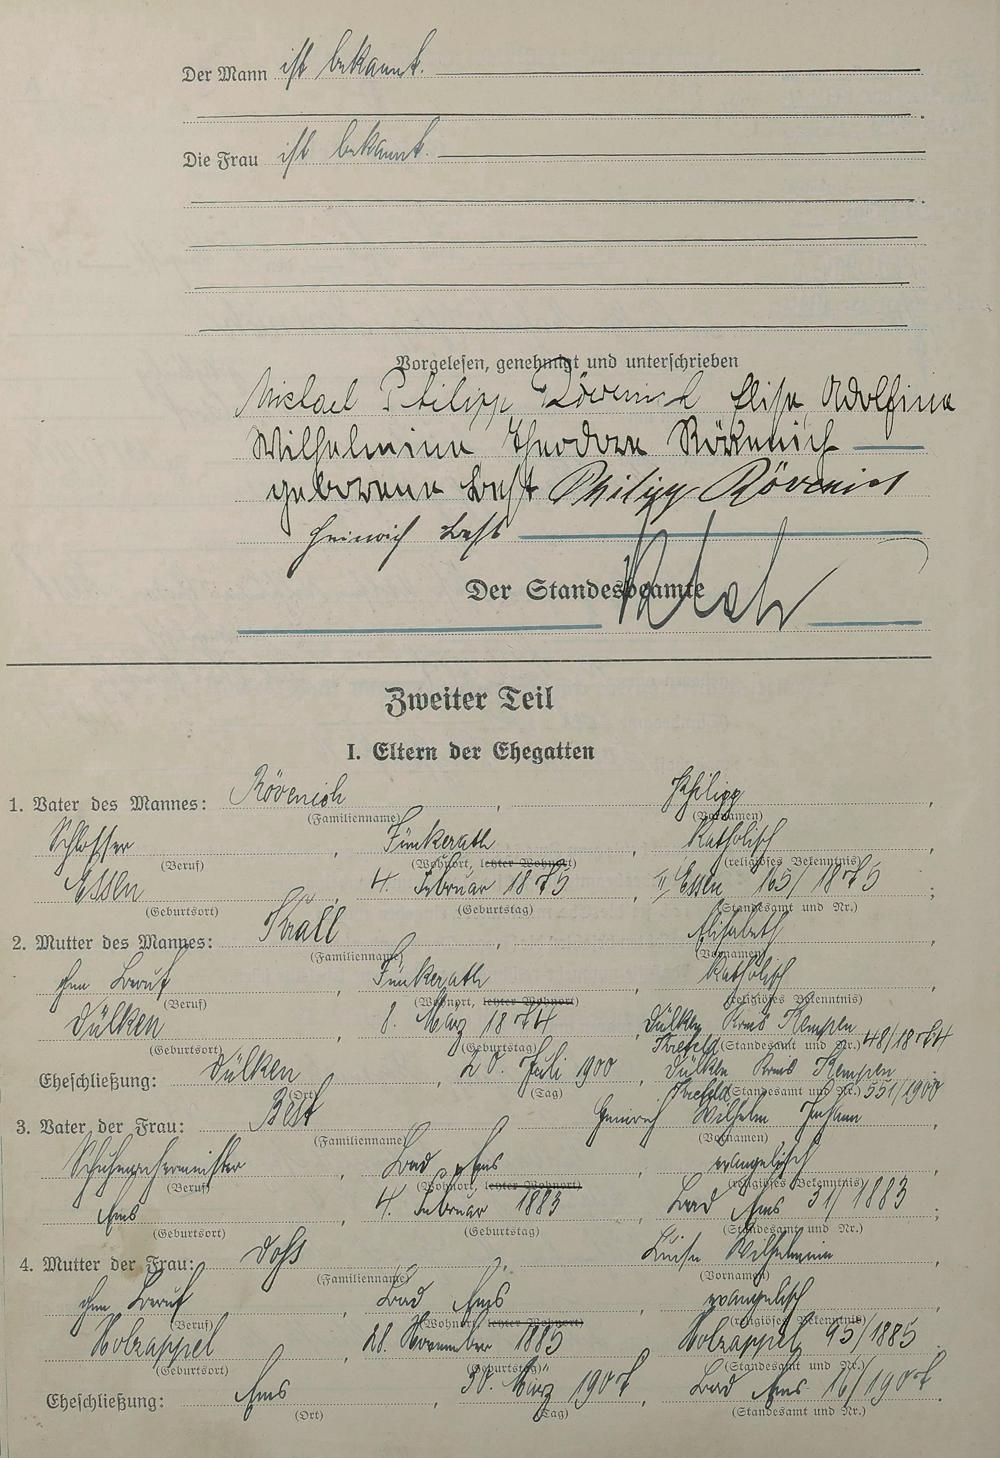 Der Mann ist bekannt.
Die Frau ist bekannt.
Vorgelesen, genehmigt und unterschrieben
Michael Philipp Rövenich Elise Adolfine
Wilhelmine Theodore Rövenich
geborene Best Philipp Rövenich
Heinrich Best
Der Standesbeamte
Zweiter Teil
I. Eltern der Ehegatten
1. Vater des Mannes: Rövenich, Philipp,
(Familienname) (Vornamen)
Schlosser, Jünkerath, Katholisch
(Beruf) (Wohnort, letzter Wohnort) (religiöses Bekenntnis)
Essen, 4. Februar 1875, II Essen 165/1875;
(Geburtsort) (Geburtstag) (Standesamt und Nr.)
2. Mutter des Mannes: Krall, Elisabeth,
(Familienname) (Vornamen)
ohne Beruf, Jünkerath, Katholisch
(Beruf) (Wohnort, letzter Wohnort) (religiöses Bekenntnis)
Dülken, 8. März 1874, Dülken Krns Kempen
(Geburtsort) (Geburtstag) Krefeld (Standesamt und Nr.) 48/1874
Eheschließung: Dülken, 20. Juli 1900, Dülken Krns Kempen
(Ort) (Tag) Krefeld (Standesamt und Nr.) 551/1900
3. Vater der Frau: Best Heinrich Wilhelm Johann,
(Familienname) (Vornamen)
Schuhmachermeister, Bad Ems, evangelisch,
(Beruf) (Wohnort, letzter Wohnort) (religiöses Bekenntnis)
Ems, 4. Februar 1883, Bad Ems 31/1883;
(Geburtsort) (Geburtstag) (Standesamt und Nr.)
4. Mutter der Frau: Luise Wilhelmine
(Familienname) (Vornamen)
ohne Beruf, Bad Ems, evangelisch,
(Beruf) (Wohnort, letzter Wohnort) (religiöses Bekenntnis)
Holzappel, 28. November 1885, Holzappel 95/1885
(Geburtsort) (Geburtstag) (Standesamt und Nr.)
Eheschließung: Ems, 30. März 1907, Bad Ems 16/1907.
(Ort) (Tag) (Standesamt und Nr.)